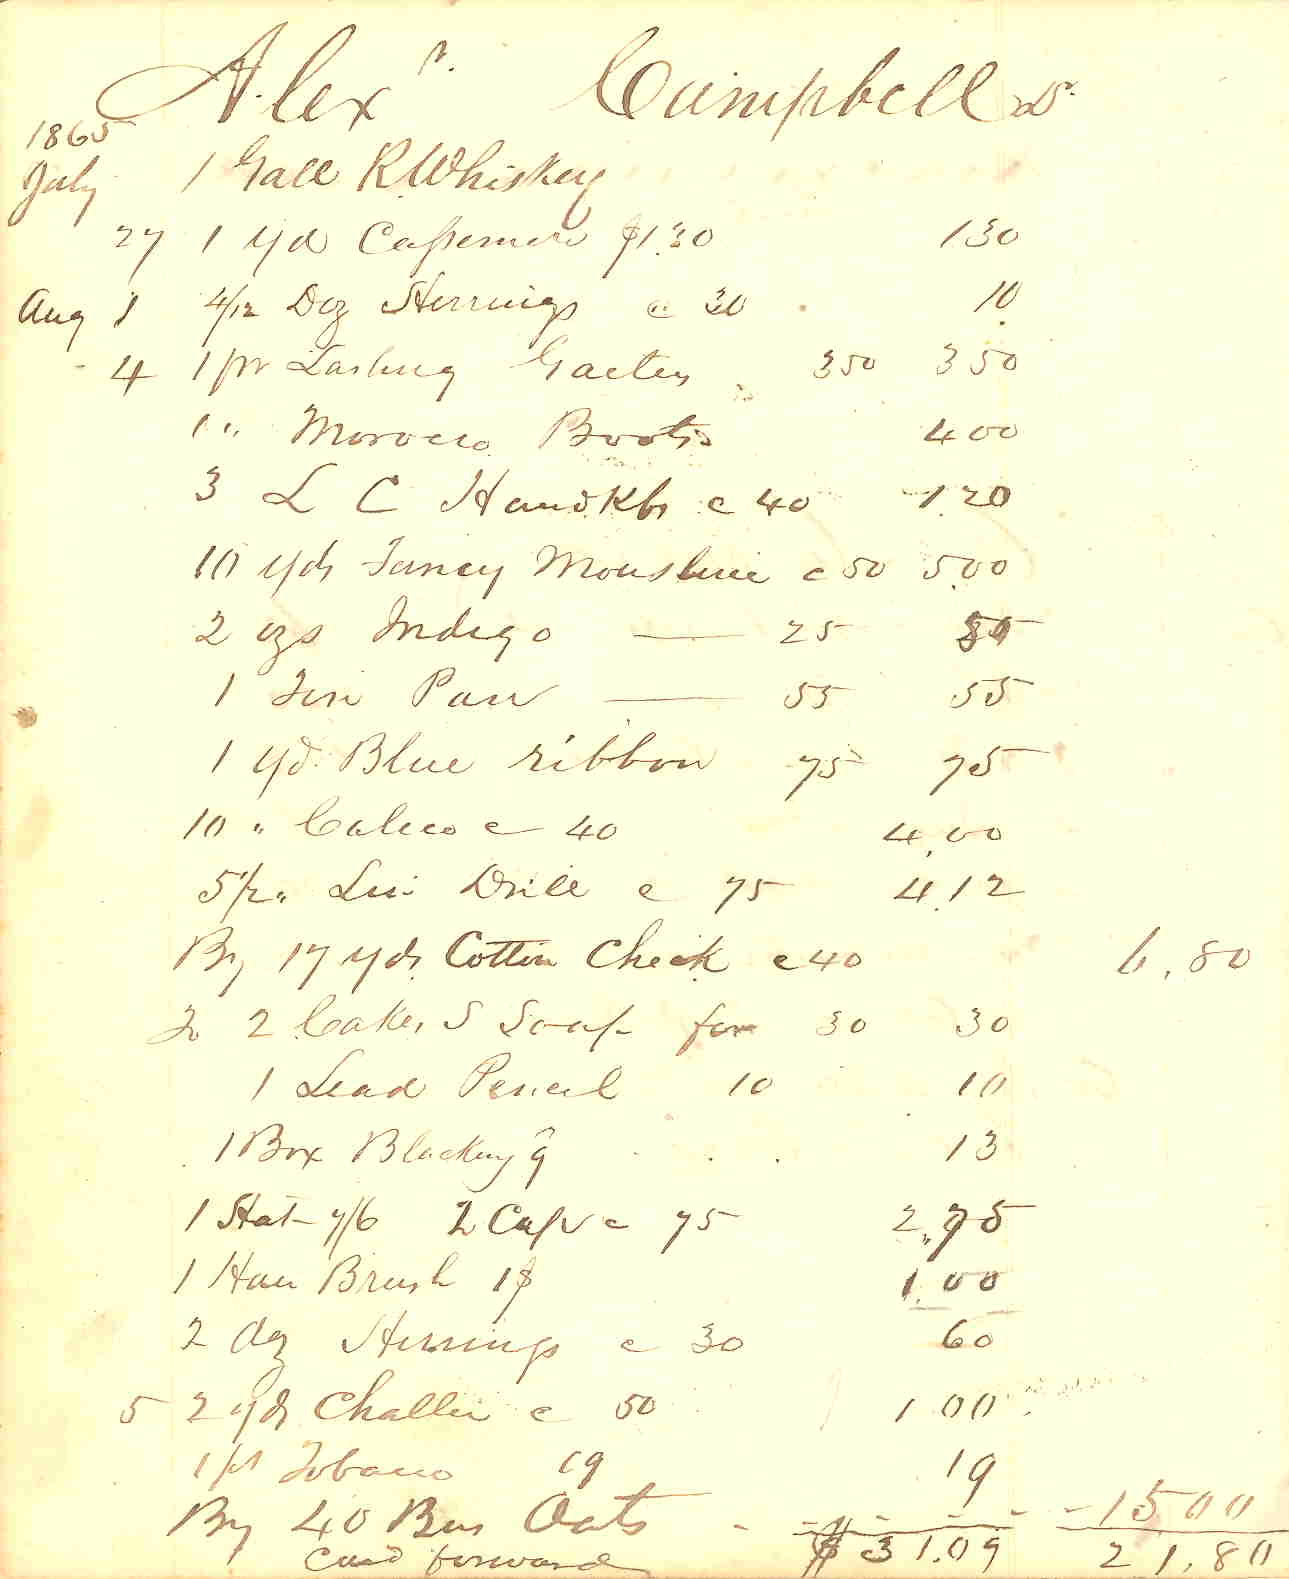 Alexr. Campbell Dr.
1865
July 1 Gall R. Whiskey
27 1 yd Cassemere $1.30 130
Aug 1 4/12 Doz Herrings c 30 10
4 1 pr Lasting Gaeters 350 350
1 " Morocco Boots 400
3 L C Handkfs c 40 1.20
10 yds Fancy Mousline c 50 5.00
2 ozs Indigo — 25
1 Tin Pan — 55 55
1 yd Blue ribbon 75 75
10 " Calico c 40 4.00
5 1/2 " Lin Drill c 75 4.12
By 17 yds Cotton Check c 40 6.80
To 2 Cakes S Soap for 30 30
1 Lead Pencil 10 10
1 Box Blacking 9 13
1 Hat 7/6 2 Caps c 75 2,75
1 Hair Brush 1$ 1.00
2 dz Herrings c 30 60
5 2 yds Challie c 50 1 00
1 Tobacco 19 19
By 40 Bus Oats - - - - - - 15 00
card forward $31.09 21.80